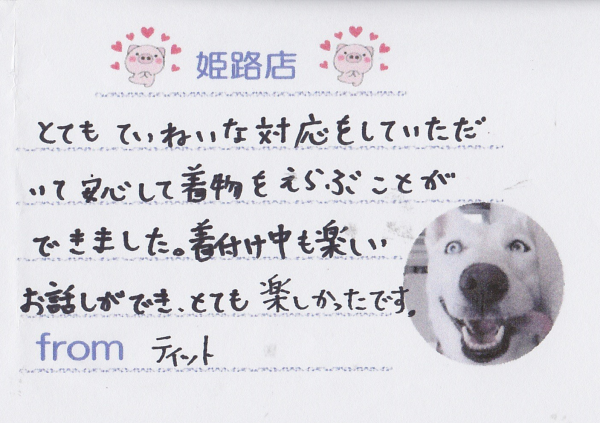 姫路店
とても ていねいな対応をしていただ
いて 安心して着物をえらぶことが
できました。着付け中も楽しい
お話しができ、とても 楽しかったです。
from ティット